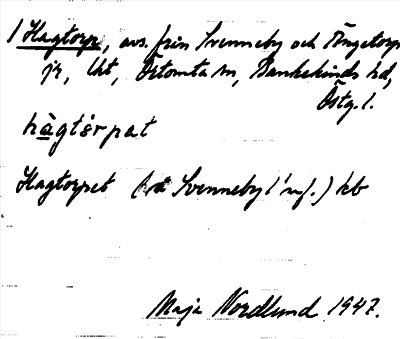 1 Hagtorp, avs. från Svenneby och Ängetorp
jr, lht, Örtomta sn, Bankekinds hd,
Östg. l.
hàgtɷrpat
Hagtorpet ( Svenneby 1/1 mf.) kb
Maja Nordlund 1947.